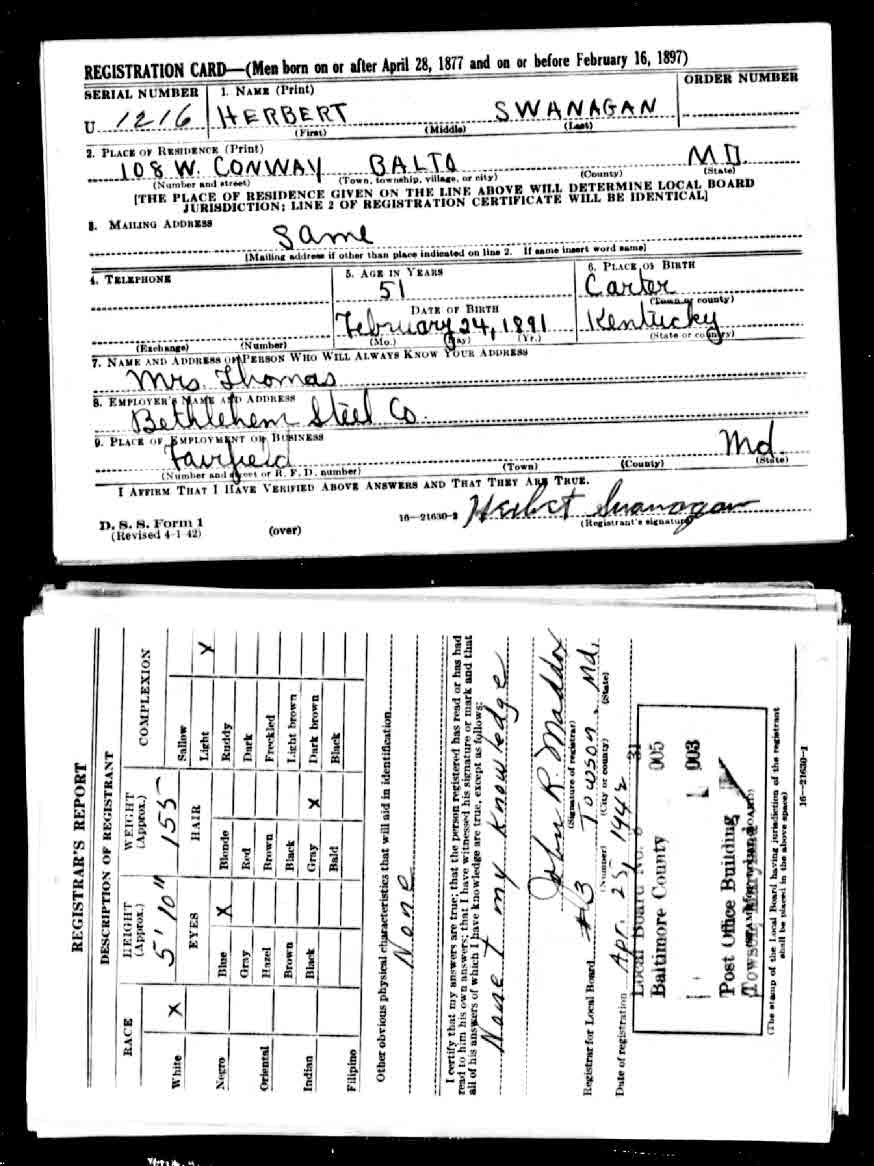 REGISTRATION CARD—(Men born on or after April 28, 1877 and on or before February 16, 1897)
SERIAL NUMBER 1. NAME (Print) ORDER NUMBER
U 1216 HERBERT SWANAGAN
(First) (Middle) (Last)
2. PLACE OF RESIDENCE (Print)
108 W. CONWAY BALTO MD.
(Number and street) (Town, township, village, or city) (County) (State)
[THE PLACE OF RESIDENCE GIVEN ON THE LINE ABOVE WILL DETERMINE LOCAL BOARD
JURISDICTION; LINE 2 OF REGISTRATION CERTIFICATE WILL BE IDENTICAL]
3. MAILING ADDRESS
Same
[Mailing address if other than place indicated on line 2. If same insert word same]
4. TELEPHONE 5. AGE IN YEARS 6. PLACE OF BIRTH
51 Carter
DATE OF BIRTH (Town or county)
February 24, 1891 Kentucky
(Exchange) (Number) (Mo.) (Day) (Yr.) (State or country)
7. NAME AND ADDRESS OF PERSON WHO WILL ALWAYS KNOW YOUR ADDRESS
Mrs. Thomas
8. EMPLOYER'S NAME AND ADDRESS
Bethlehem Steel Co.
9. PLACE OF EMPLOYMENT OR BUSINESS
Fairfield Md.
(Number and street or R. F. D. number) (Town) (County) (State)
I AFFIRM THAT I HAVE VERIFIED ABOVE ANSWERS AND THAT THEY ARE TRUE.
D. S. S. Form 1 16—21630-2 Herbert Swanagan
(Revised 4-1-42) (over) (Registrant's signature)
REGISTRAR'S REPORT
DESCRIPTION OF REGISTRANT
RACE HEIGHT (Approx.) WEIGHT (Approx.) COMPLEXION
White X 5' 10" 155 Sallow
EYES HAIR Light X
Negro Blue X Blonde Ruddy
Gray Red Dark
Oriental Hazel Brown Freckled
Brown Black Light brown
Indian Black Gray X Dark brown
Bald Black
Filipino
Other obvious physical characteristics that will aid in identification
None
I certify that my answers are true; that the person registered has read or has had
read to him his own answers; that I have witnessed his signature or mark and that
all of his answers of which I have knowledge are true, except as follows:
None t my knowledge
John R. Maddox
(Signature of registrar)
Registrar for Local Board #3 Towson, Md.
(Number) (City or county) (State)
Date of registration Apr. 25, 1942
Local Board No. 3 31
Baltimore County 005
003
Post Office Building
Towson, Maryland
(STAMP OF LOCAL BOARD)
(The stamp of the Local Board having jurisdiction of the registrant
shall be placed in the above space)
16—21630-1